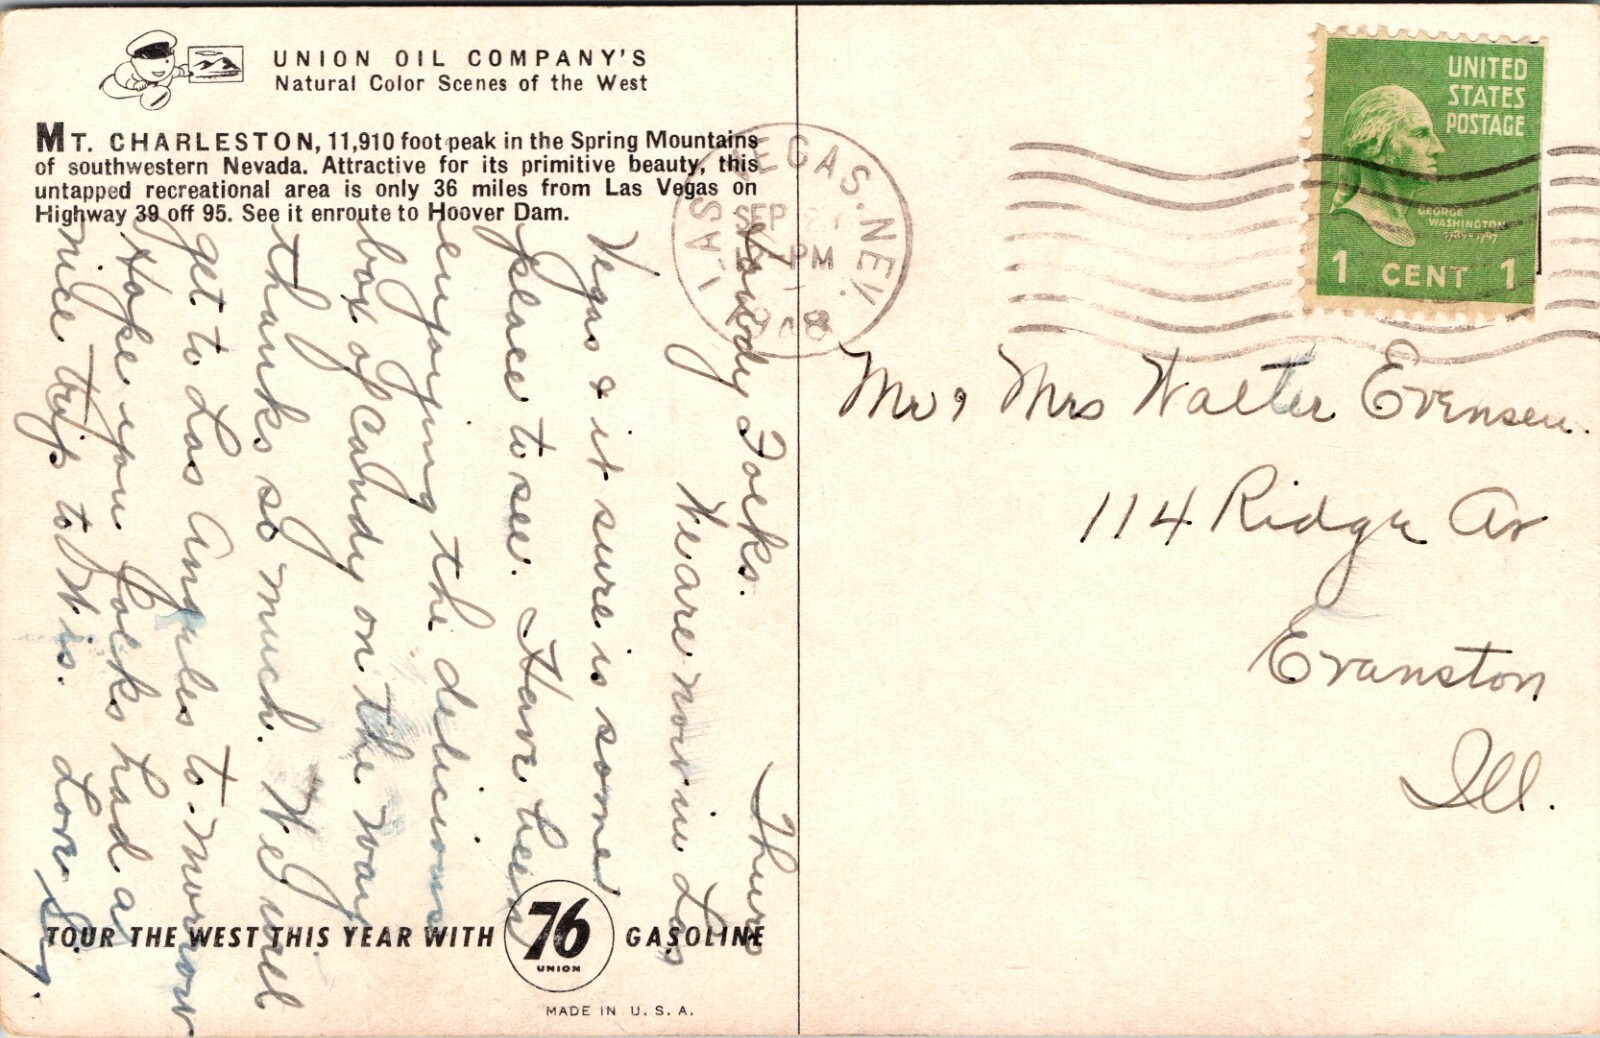 UNION OIL COMPANY'S
Natural Color Scenes of the West
MT. CHARLESTON, 11,910 foot peak in the Spring Mountains
of southwestern Nevada. Attractive for its primitive beauty, this
untapped recreational area is only 36 miles from Las Vegas on
Highway 39 off 95. See it enroute to Hoover Dam.
Thurs
Howdy Folks.
We are now in Los
Vegas & it sure is some
place to see. Have been
enjoying the delicious
box of candy on the way
thanks so much. We will
get to Los Angeles to-morrow
Hope you folks had a
nice trip to Wis. Love
TOUR THE WEST THIS YEAR WITH 76 UNION GASOLINE
MADE IN U.S.A.
LAS VEGAS. NEV.
SEP
PM
UNITED
STATES
POSTAGE
GEORGE
WASHINGTON
1789-1797
1 CENT 1
Mr, Mrs Walter Evensen.
114 Ridge Av
Evanston
Ill.